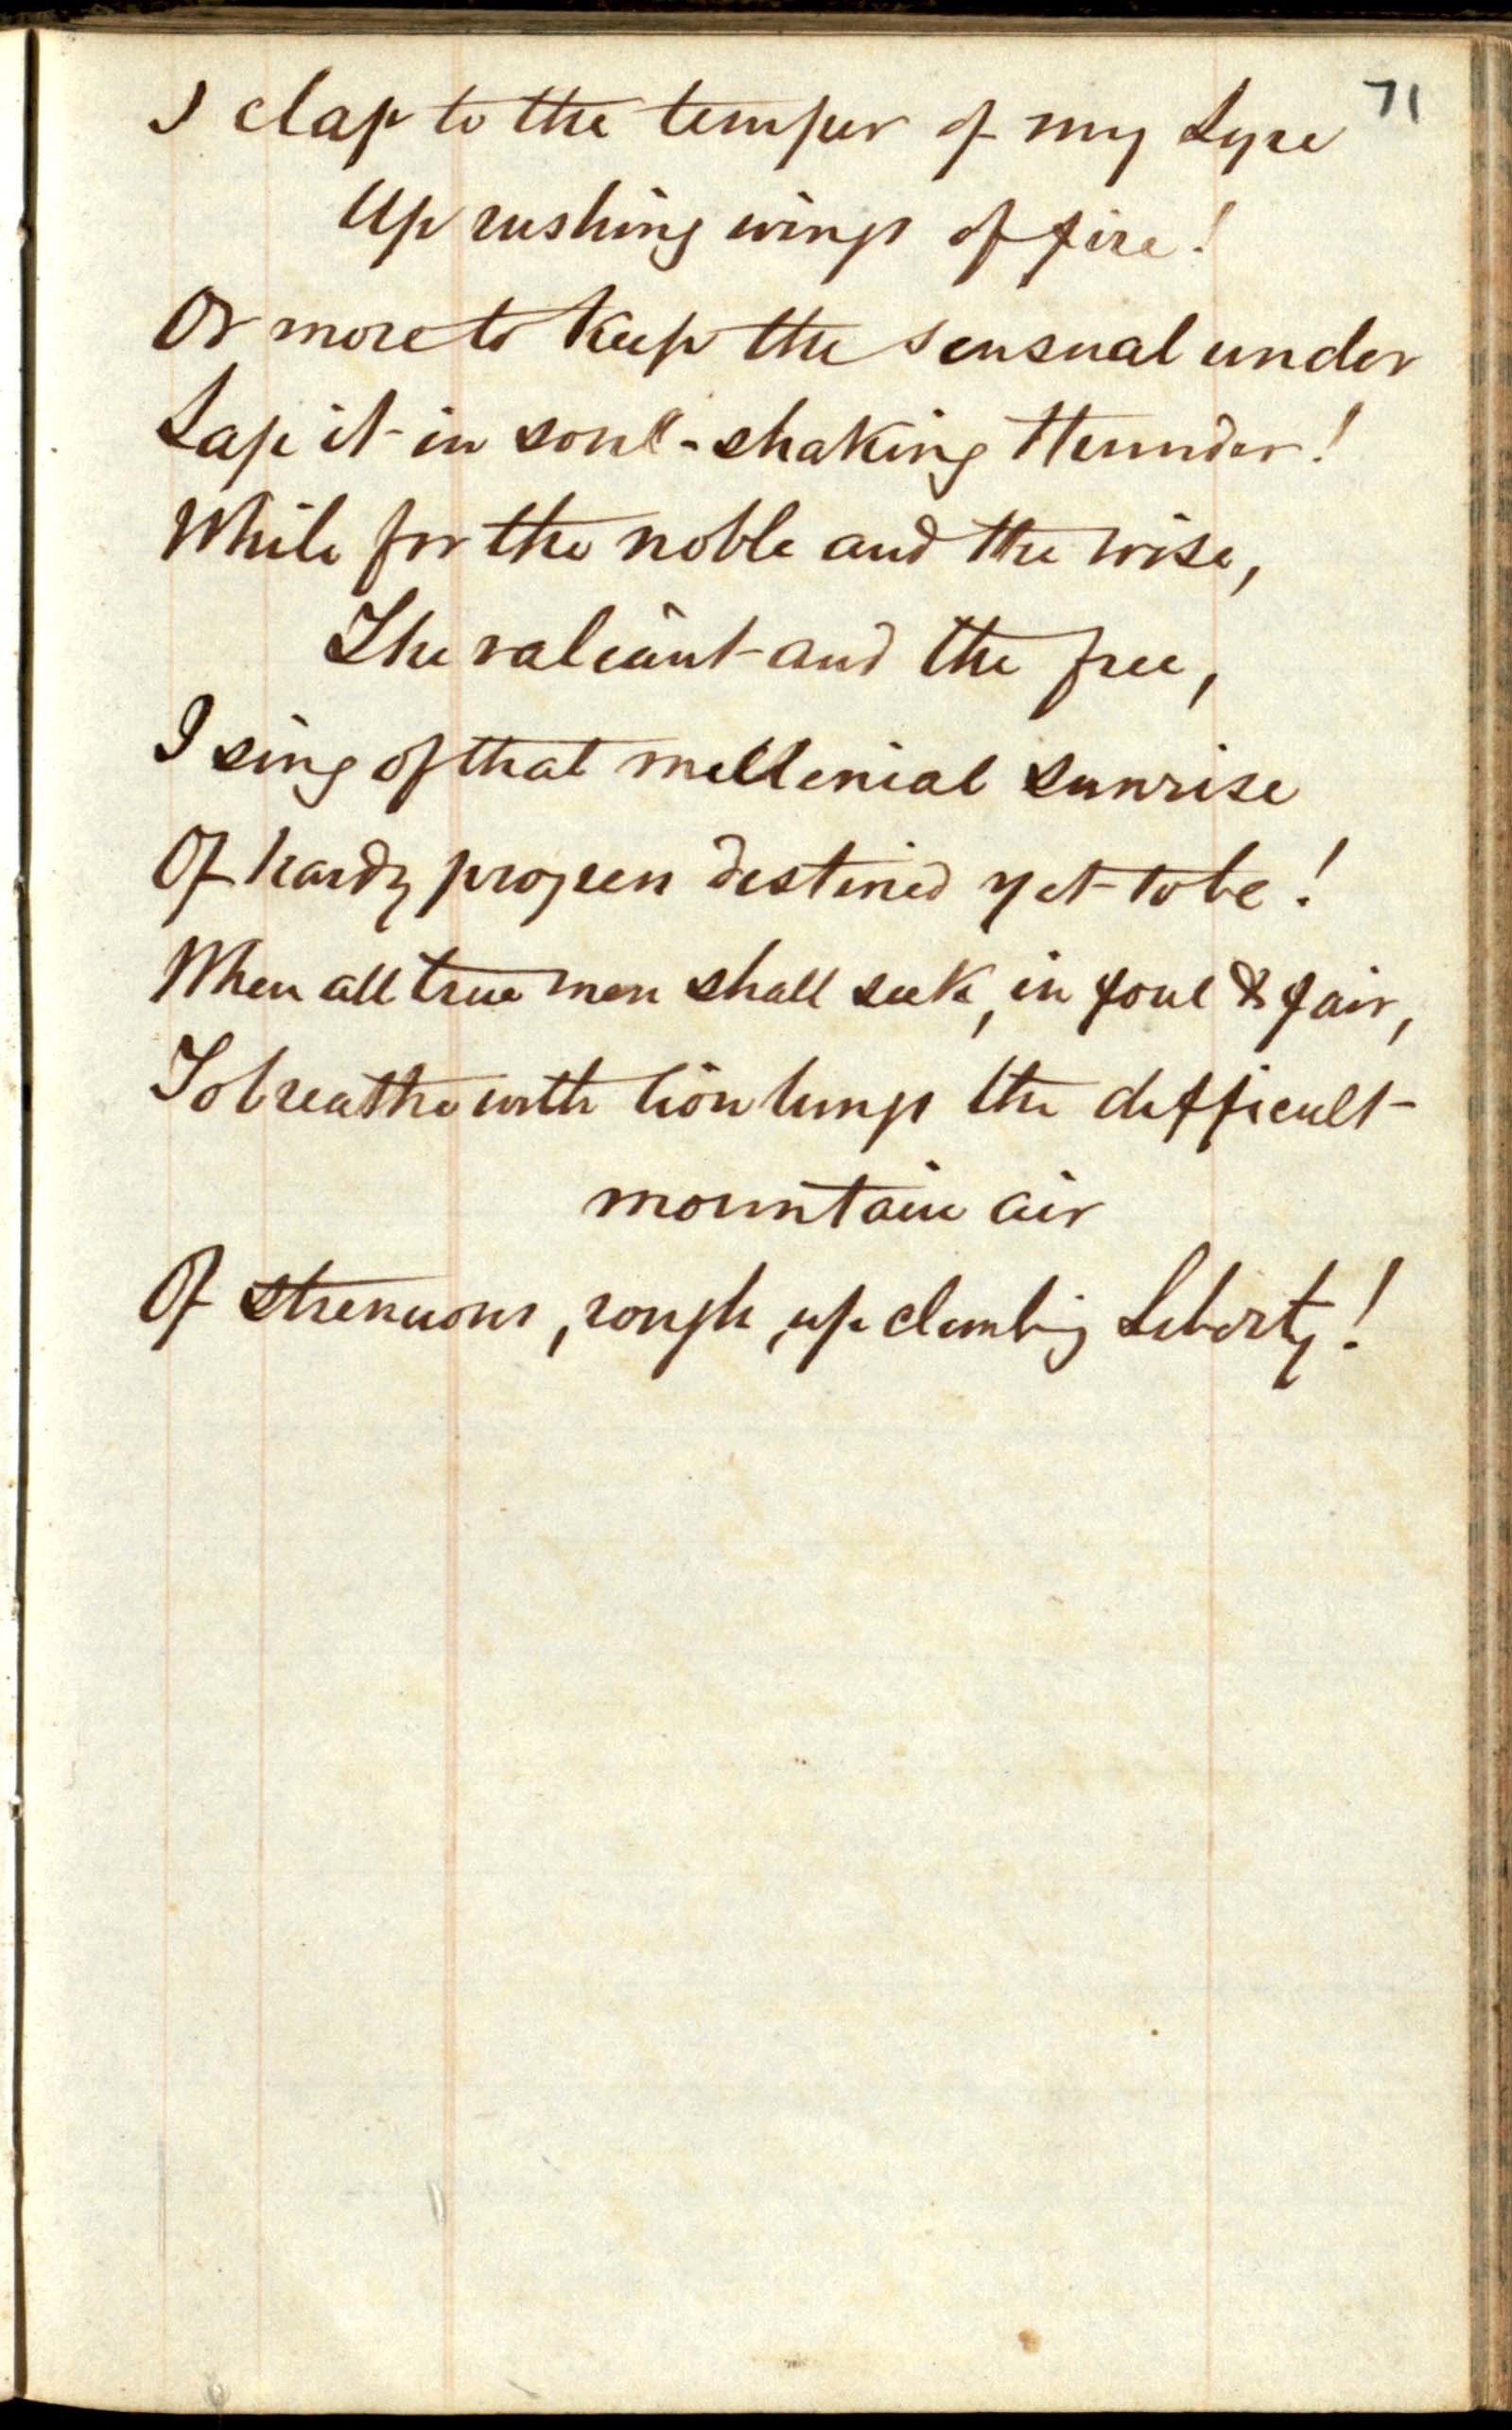 71
I clap to the temper of my Lyre
Up rushing wings of fire!
Or more to keep the sensual under
Lap it in soul-shaking thunder!
While for the noble and the wise,
The valiant and the free,
I sing of that millenial sunrise
Of hardy progress destined yet to be!
When all true men shall seek, in foul & fair,
To breathe with lion lungs the difficult
mountain air
Of strenuous, rough, up climbing Liberty!